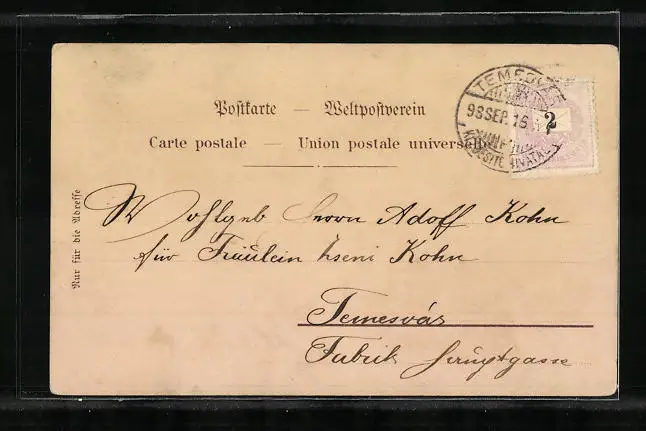 Postkarte — Weltpostverein
Carte postale — Union postale universelle
TEMESVÁR
98 SEP. 16
2
Nur für die Adresse
Wohlgeb Herrn Adolf Kohn
für Fräulein Irseni Kohn
Temesvár
Fabrik Hauptgasse